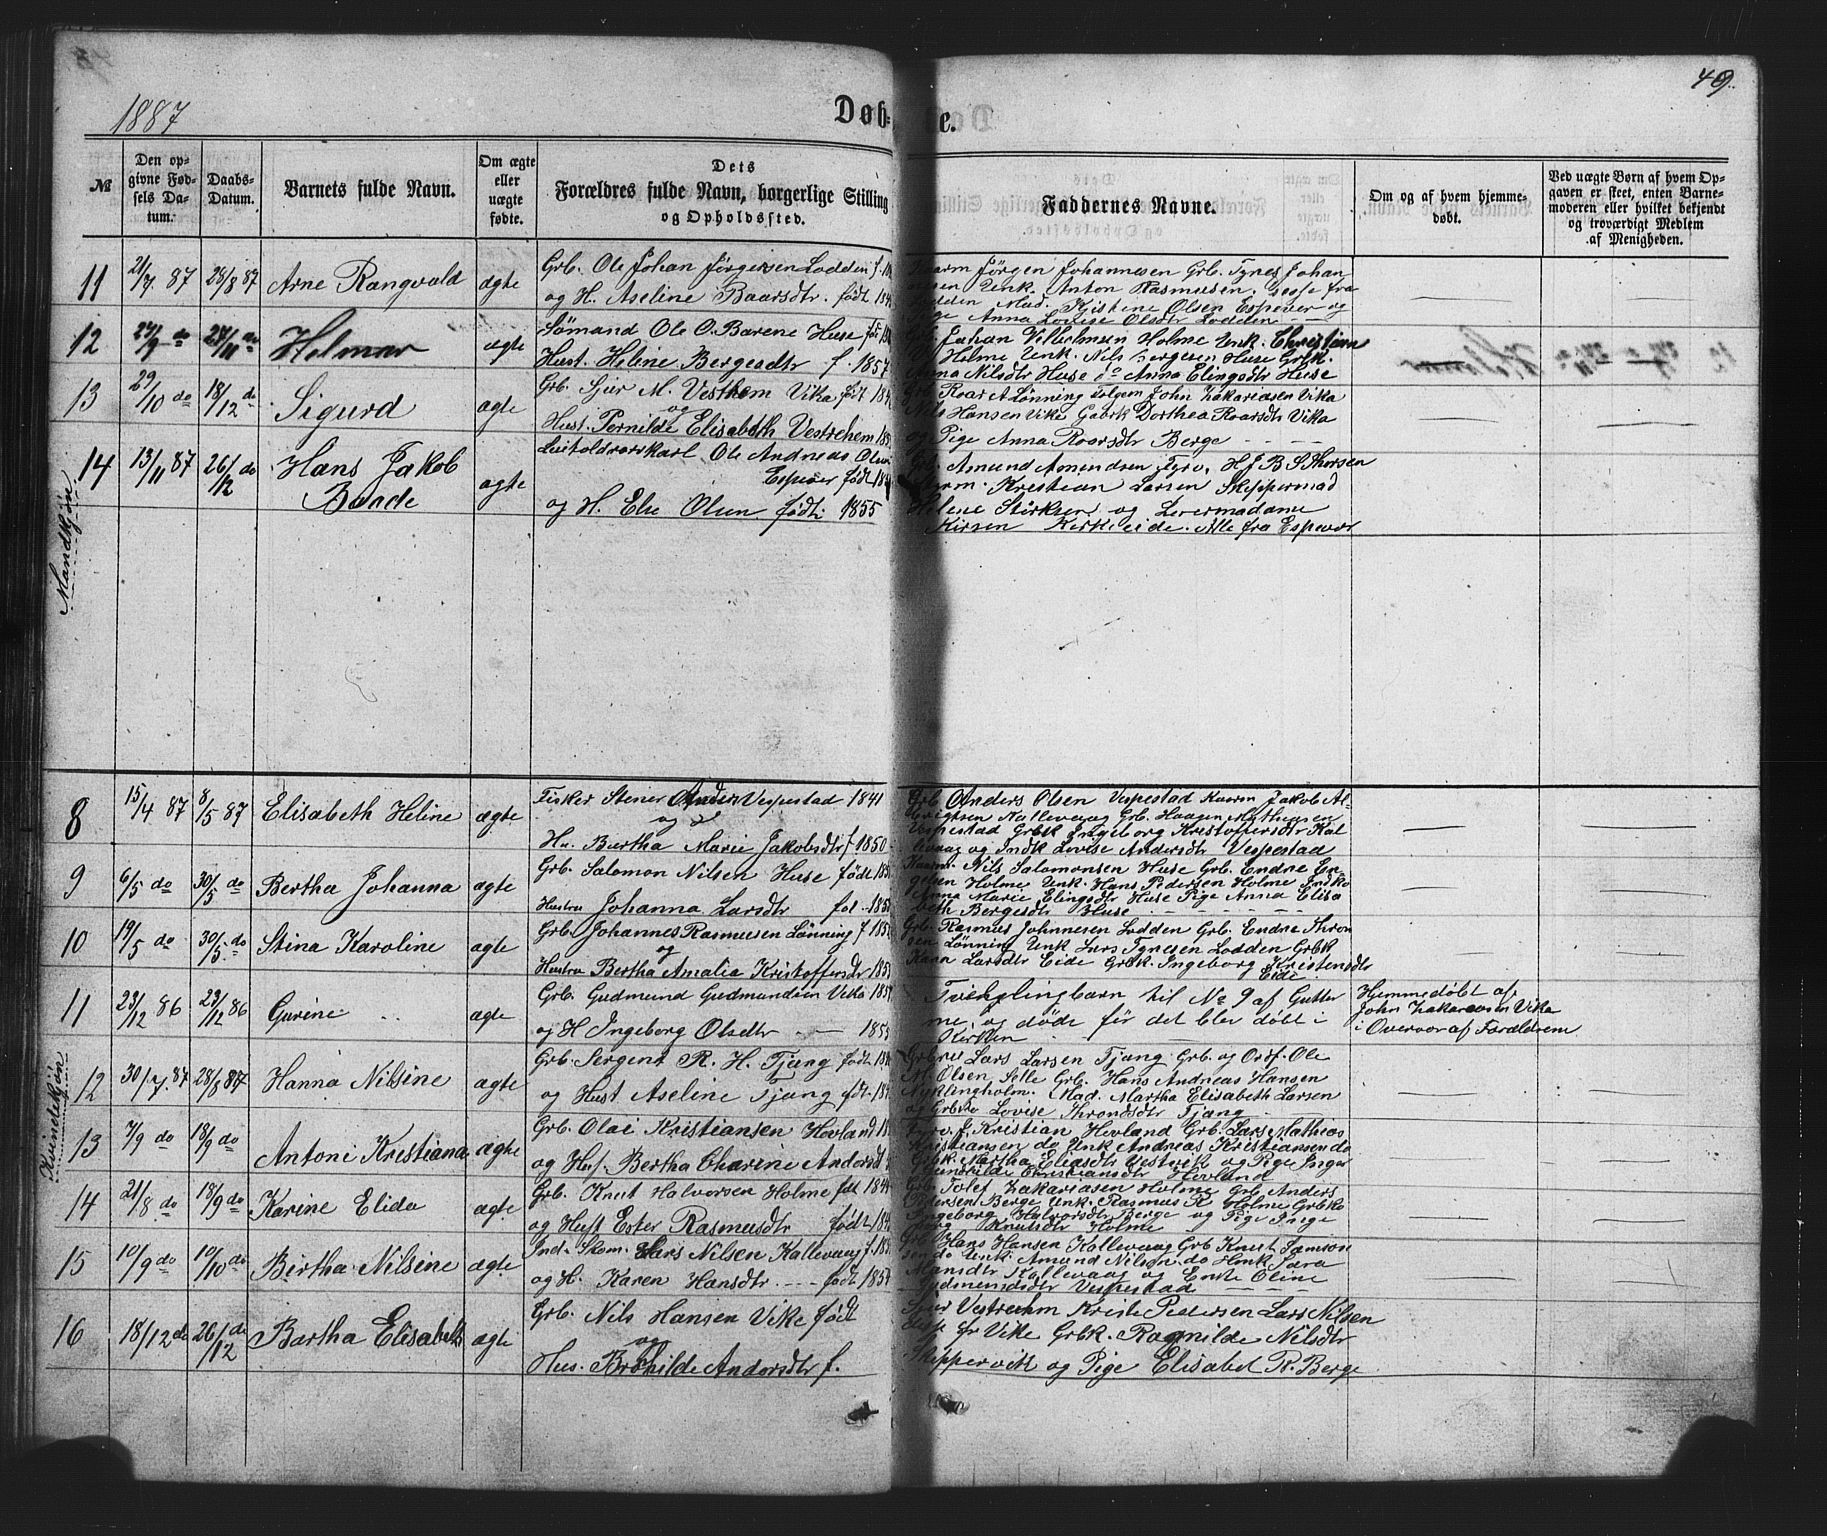 1887
Døb-
e.
49.
№
Den opgivne Fødsels Datum.
Daabs-Datum.
Barnets fulde Navn.
Om ægte eller uægte fødte.
Dets
Forældres fulde Navn, borgerlige Stilling
og Opholdssted.
Faddernes Navne.
Om og af hvem hjemmedøbt.
Ved uægte Børn af hvem Opgaven er skeet, enten Barnemoderen eller hvilket bekjendt og troværdigt Medlem af Menigheden.
Mandkjön
11 21/7 87 28/8 87 Arne Rangvald ægte
Grb. Ole Johan Jørgensen Lodden f.
og H. Aseline Baarsdtr. født
Jørgen Johannesen Grb. Tynes Johan
Unk. Anton Rasmusen, fra
Lodden Mad. Kistine Olsen Espever og
Anna Lovise Olsdtr Lodden
12 24/9 do 27/11 do Helmar ægte
Sømand Ole O. Barene Huse
Hust. Heline Bergesdtr f. 1857
Johan Vilhelmsen Holme Unk. Christian
Holme Unk. Nils Bergesen Huse Grbk.
Anna Nilsdtr Huse do Anna Elingsdtr Huse
13 29/10 do 18/12 do Sigurd ægte
Grb. Sjur M. Vesthem Vika født
og
Hust. Pernilde Elisabeth Vestrehem
Grb Roar A Lønning John Zakariasen Vika
Nils Hansen Vike Gabrk Dorthea Roarsdtr Vika
og Pige Anna Roarsdtr Berge
14 13/11 87 26/12 do Hans Jakob
Baade ægte
Ole Andreas Olsen
Espever født
og H. Else Olsen født 1855
Grb. Amund Amundsen H J B S Thorsen
Kristian Larsen Skippermad
Helene Størksen og Lærermadame
Kirsen Kirkeeide. Alle fra Espevær
Kvindekjön
8 15/4 87 8/5 87 Elisabeth Heline ægte
Fisker Stener Anders Vespestad 1841
og
Hu. Bertha Marie Jakobsdtr f 1850
Grb Anders Olsen Vespestad Jakob
Kallevaag Grb. Haagen Mathiasen
Vespestad Grbk Ingeborg Kristoffersdtr Kal
levaag og Indk Lovise Andersdtr Vespestad
9 6/5 do 30/5 do Bertha Johanna ægte
Grb. Salomon Nilsen Huse føde
Hustru Johanna Larsdtr
Nils Salomonsen Huse Grb. Endre En-
gelsen Holme Unk. Hans Pedersen Holme
Anna Marie Elingsdtr Huse Pige Anna Elisa
beth Bergesdtr Huse
10 19/5 do 30/5 do Stina Karoline ægte
Grb. Johannes Rasmusen Lønning f
og
Hustru Bertha Amalia Kristoffersdr
Grb. Rasmus Johnnesen Lodden Grb. Endre Thron
sen Lønning Unk Lars Tynesen Lodden Grbk
Karn Larsdtr Eide Grbk. Ingeborg Kristensdtr
Eide
11 23/12 86 23/12 86 Gurine ægte
Grb. Gudmund Gudmundsen Vika
og H Ingeborg Olsdtr
Tvinglingbarn til No 9 af Gutter
ne, og døde før det blev døbt i
Kirken
Hjemmedøbt af
John Zakariasen Vika
i Overvær af Forældrene
12 30/7 87 28/8 87 Hanna Nilsine ægte
Grb. Sergent R. H. Tjang født
og Hust Aseline Tjang født
Lars Larsen Tjang Grb. og Ordf. Ole
Olsen Selle Grb. Hans Andreas Hansen
Nyklingholm. Mad. Martha Elisabeth Larsen
Lovise Throndsdtr Tjang
13 7/9 do 18/9 do Antoni Kristiana ægte
Grb. Olai Kristiansen Hovland
og Hus. Bertha Charine Andersdt
Kristian Hovland Grb. Lars Mathias
Kristiansen do Unk Andreas Kristiansen do
Grbk Martha Eliasdtr Vestvik og Pige Inger
Christiansdtr Hovland
14 21/8 do 18/9 do Karine Elida ægte
Grb. Knut Halvorsen Holme født
og Hust Ester Rasmusdtr født
Grb Tolef Zakariasen Holme Grb Anders
Pedersen Berge Unk. Rasmus K Holme
Ingeborg Halvorsdtr Berge og Pige
Knutsdtr Holme
15 10/9 do 10/10 do Birtha Nilsine ægte
Lars Nilsen Kallevaag f.
og H. Karen Hansdtr født 1857
Grb Hans Hansen Kallevaag Grb Knut Samson
sen do Unk Amund Nilsen do
Hansdtr Kallevaag og Enke Oline
Gudmundsdtr Vespestad
16 18/12 do 26/12 do Bartha Elisabeth ægte
Grb. Nils Hansen Vike født
og
Hus. Andersdtr f.
Sjur Vestrehm Pedersen Lars Nilsen
Vike Grbk. Ragnilde Nilsdtr
Skippervik og Pige Elisabet R. Berge